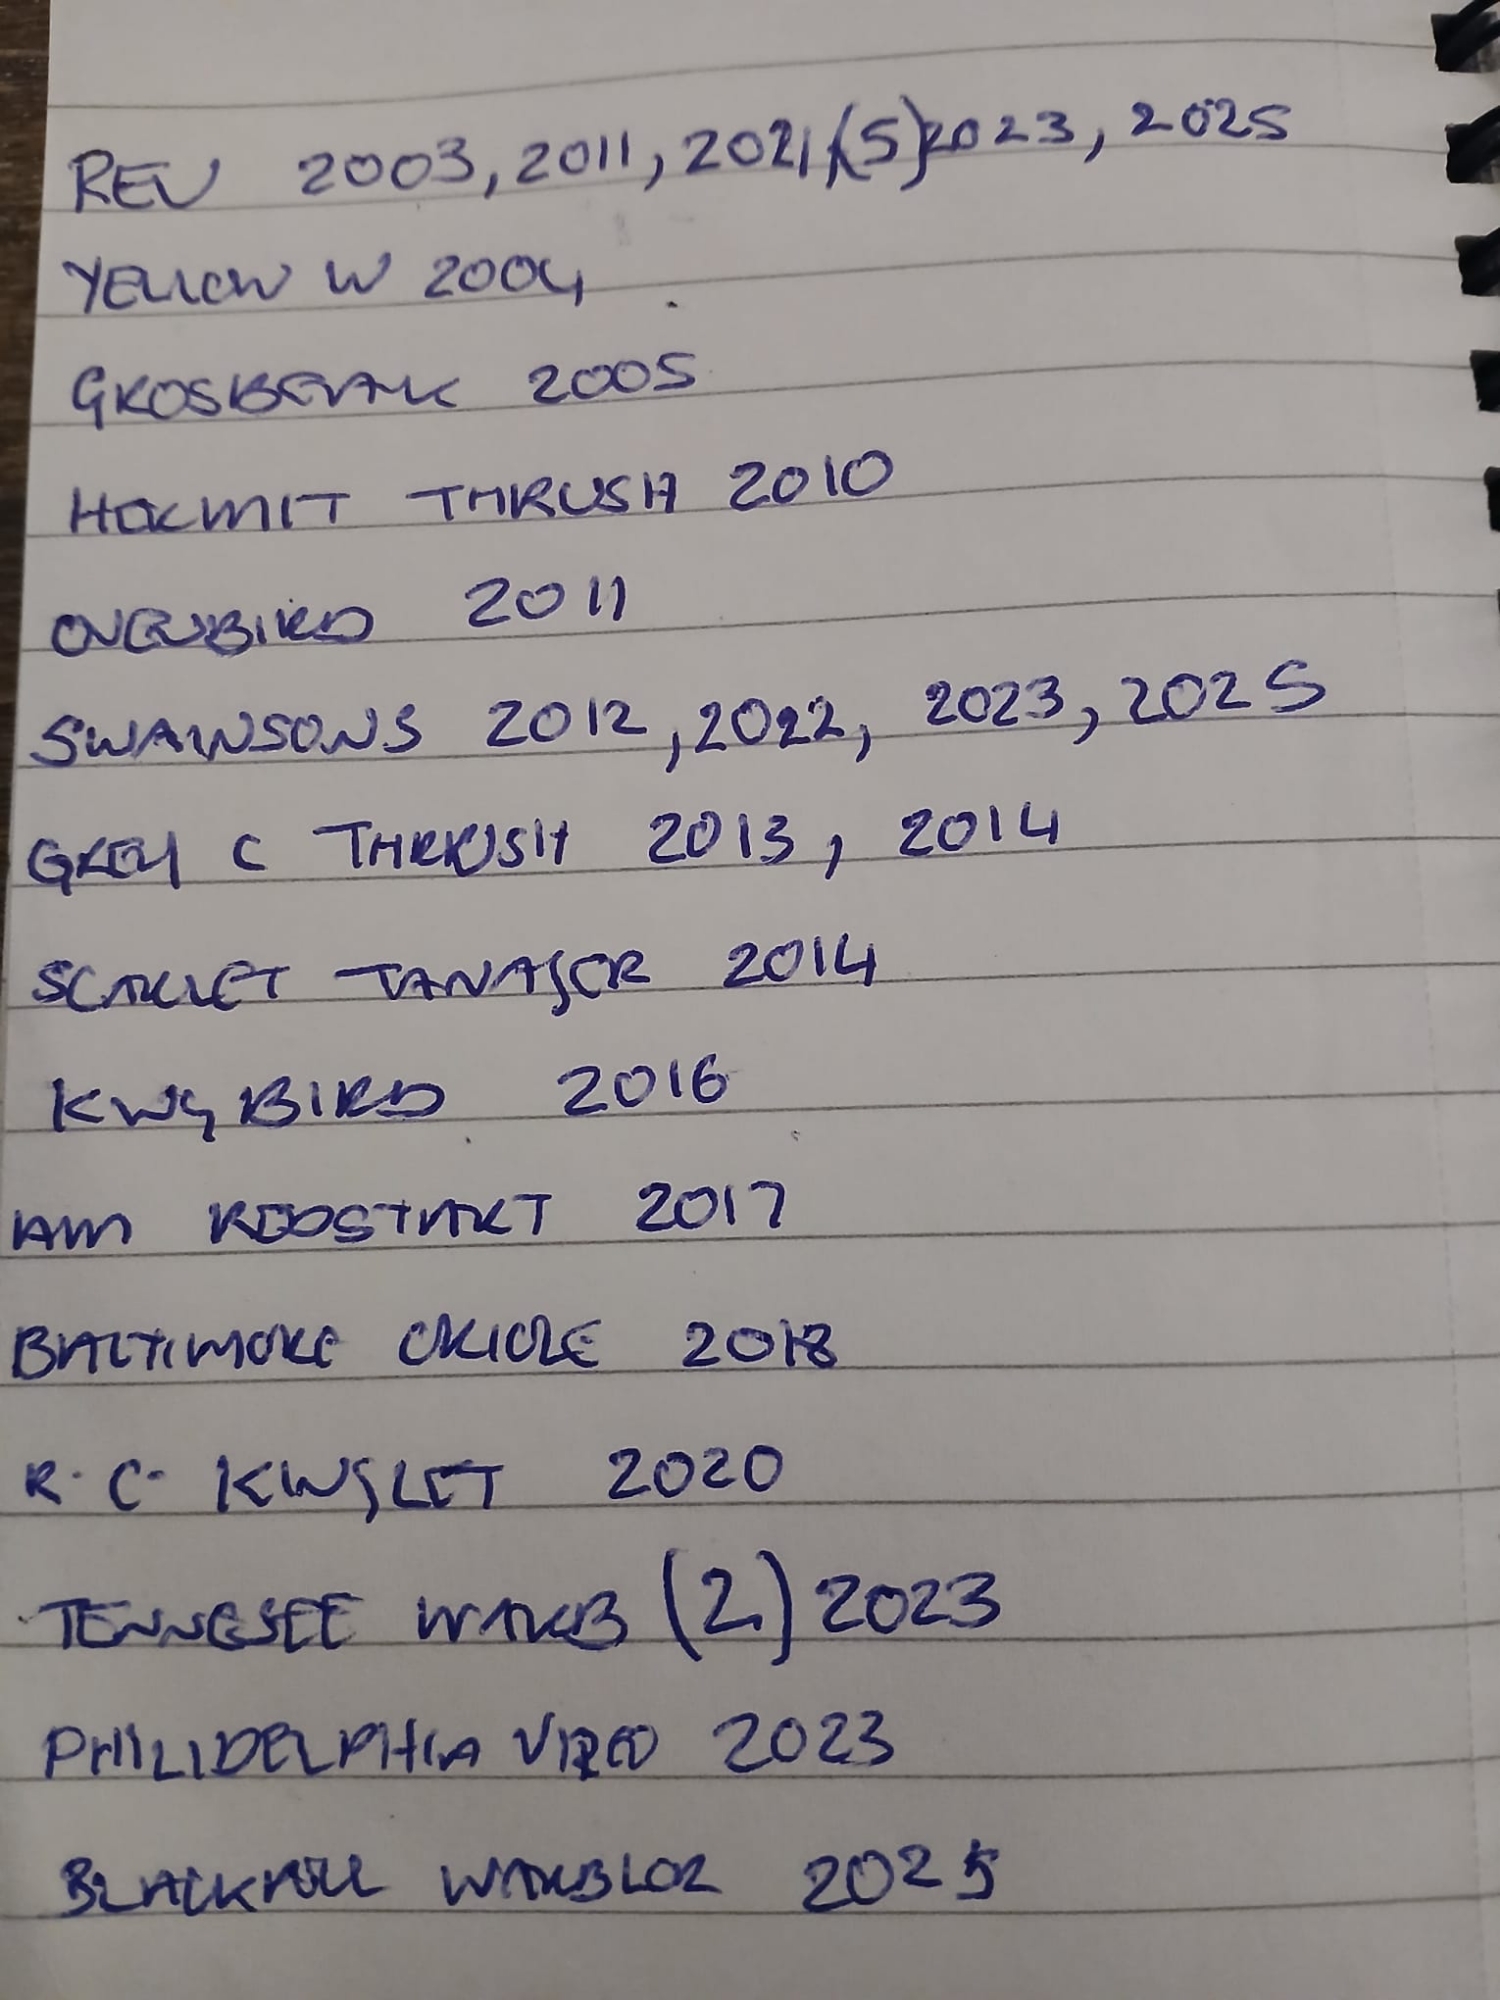 REV 2003, 2011, 2021,(5)2023, 2025
YELLOW W 2004
GROSBEAK 2005
HERMIT THRUSH 2010
OVENBIRD 2011
SWAINSONS 2012, 2022, 2023, 2025
GREY C THRUSH 2013, 2014
SCARLET TANAGER 2014
KINGBIRD 2016
AM REDSTART 2017
BALTIMORE ORIOLE 2018
R. C. KINGLET 2020
TENNESEE WARB (2) 2023
PHILIDELPHIA VIREO 2023
BLACKPOLL WARBLER 2025